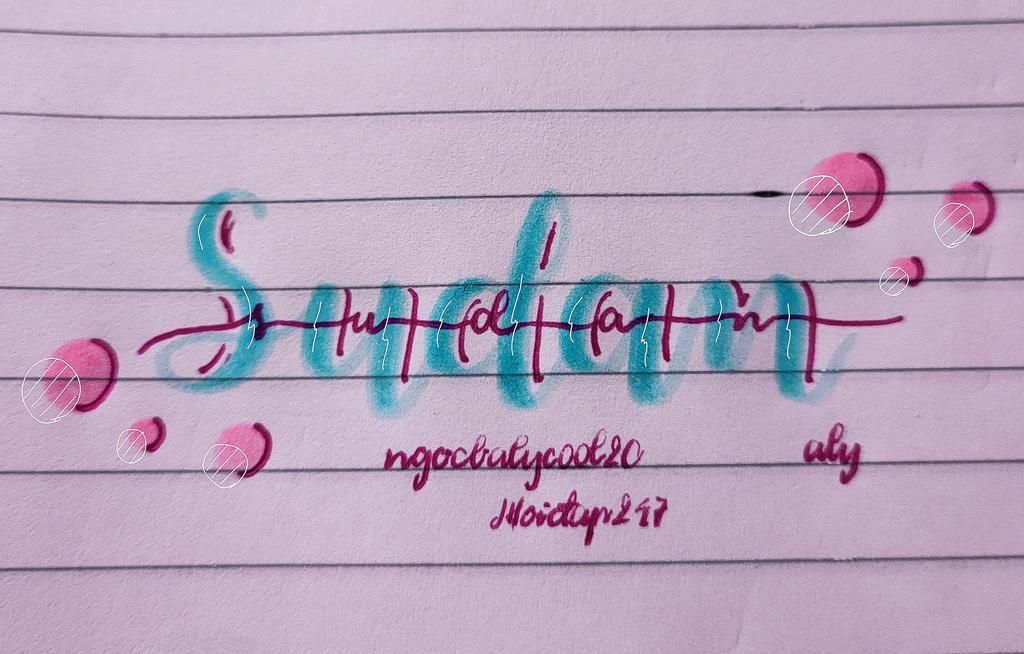 Sudan
s u d a n
ngocbalycool20 aly
Hoidap247